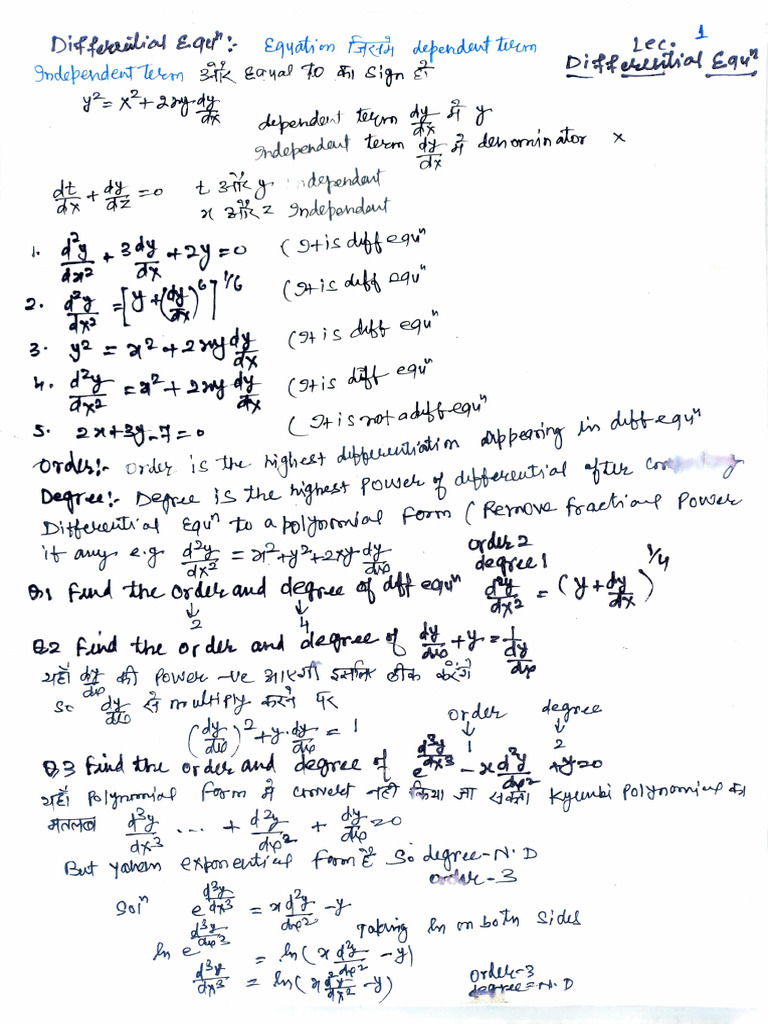 1
Lec.
Differential Equⁿ
Differential Equⁿ:- Equation जिसमे dependent term
Independent term और Equal To का sign हो
y² = x² + 2xy dy/dx
dependent term dy/dx में y
Independent term dy/dx में denominator x
dt/dx + dy/dz = 0 t और y independent
x और z Independent
1. d²y/dx² + 3dy/dx + 2y = 0 (It is diff equⁿ
2. d²y/dx² = [y + (dy/dx)⁶]^1/6 (It is diff equⁿ
3. y² = x² + 2xy dy/dx (It is diff equⁿ
4. d²y/dx² = x² + 2xy dy/dx (It is diff equⁿ
5. 2x+3y-7=0 (It is not a diff equⁿ
Order:- Order is the highest differentiation appearing in diff equⁿ
Degree:- Degree is the highest Power of differential after
Differential Equⁿ to a polynomial form (Remove fractional Power
if any e.g d²y/dx² = x²+y²+2xy dy/dx order 2 degree 1
Q1 Find the order and degree of diff equⁿ d²y/dx² = (y + dy/dx)^1/4
↓ 2 ↓ 4
Q2 Find the order and degree of dy/dx + y = 1/(dy/dx)
यहाँ dy/dx की power -ve आएगी इसलि ठीक करेंगे
So dy/dx से multiply करने पर
(dy/dx)² + y.dy/dx = 1 order ↓ 1 degree ↓ 2
Q3 Find the order and degree of e^(d³y/dx³) - x d²y/dx² + y = 0
यहाँ Polynomial Form मे convert नही किया जा सकता Kyunki Polynomial का
मतलब d³y/dx³ ... + d²y/dx² + dy/dx = 0
But yaham exponential form है So degree - N.D
order - 3
Solⁿ e^(d³y/dx³) = x d²y/dx² - y
Taking ln on both sides
ln e^(d³y/dx³) = ln(x d²y/dx² - y)
d³y/dx³ = ln(x d²y/dx² - y) order-3
degree = N.D